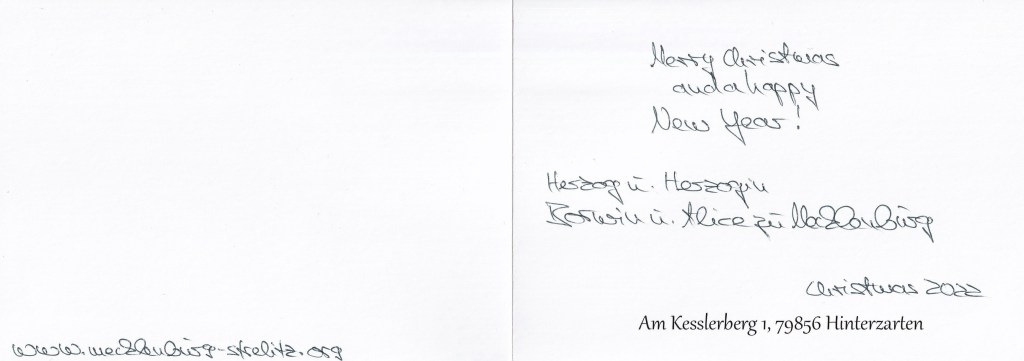 www.mecklenburg-strelitz.org
Merry Christmas
and a happy
New Year!
Herzog u. Herzogin
Borwin u. Alice zu Mecklenburg
Christmas 2022
Am Kesslerberg 1, 79856 Hinterzarten